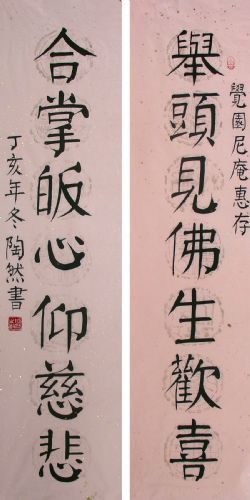 覺園尼庵惠存
舉頭見佛生歡喜
合掌皈心仰慈悲
丁亥年冬陶然書